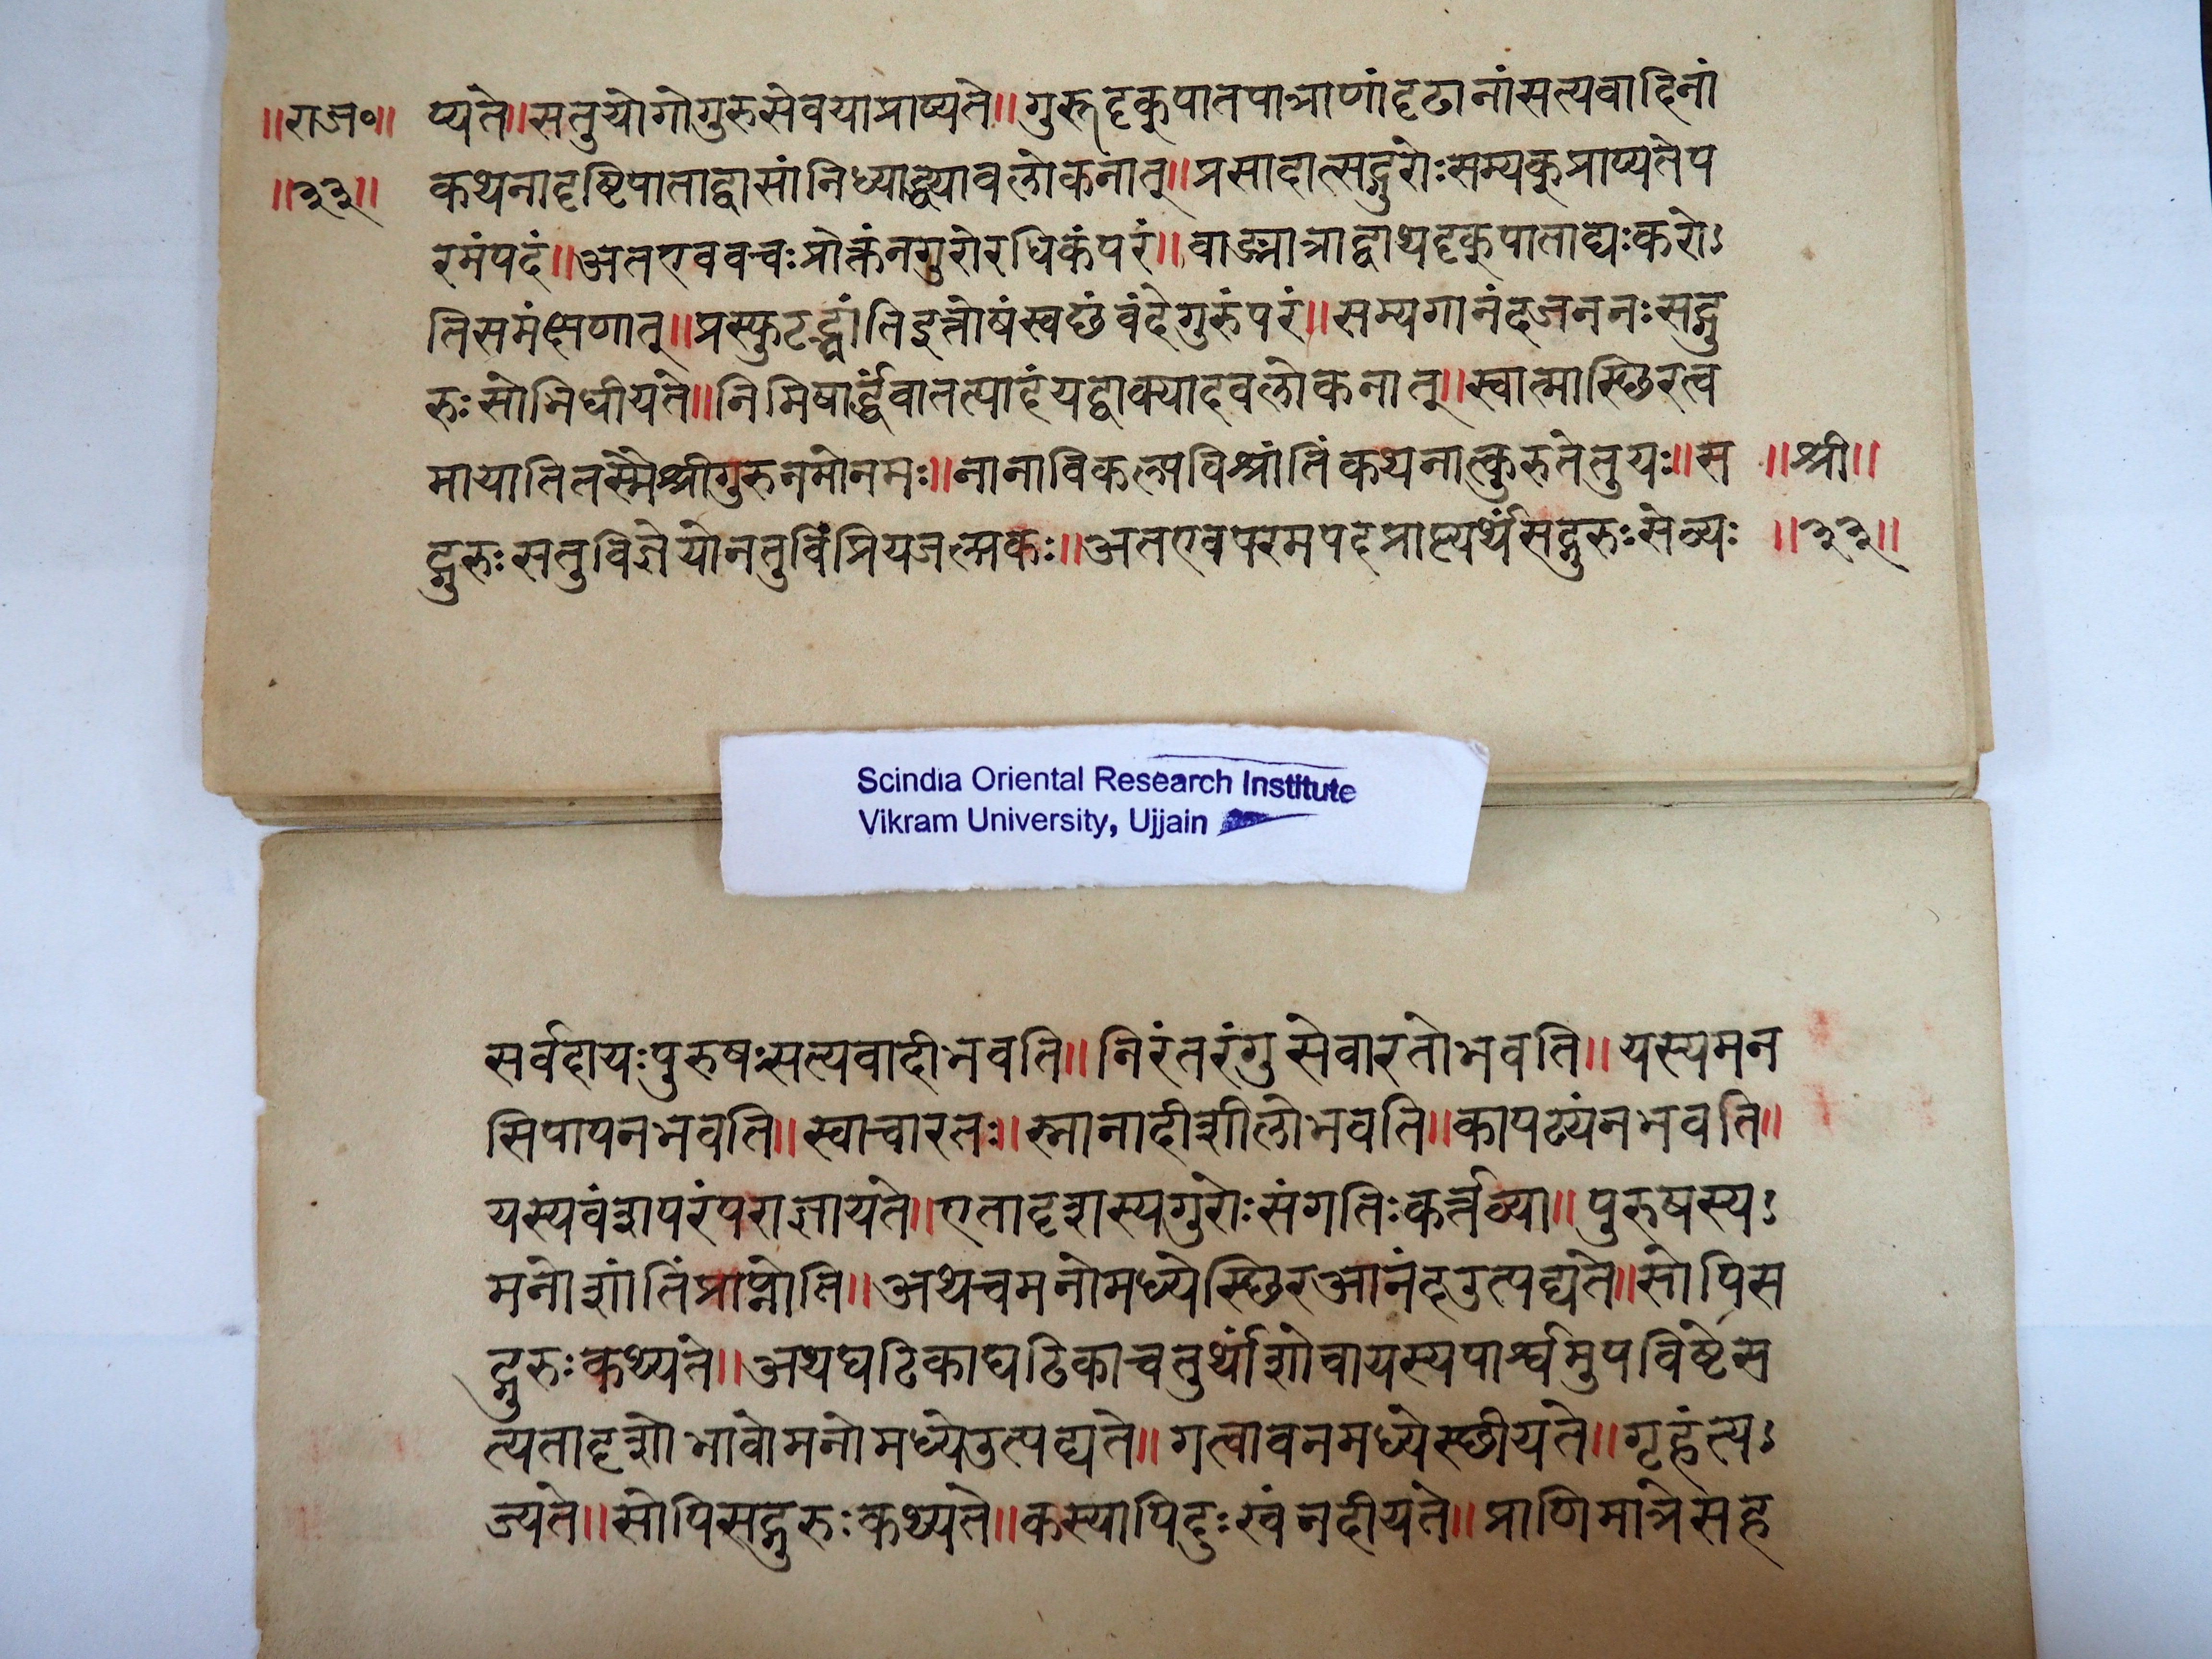 ॥राज॰॥ प्यते॥सतुयोगोगुरुसेवयाप्राप्यते॥गुरुदृक्पातपात्राणांदृढानांसत्यवादिनां
॥३३॥ कथनादृष्टिपाताद्वासांनिध्याद्ध्यावलोकनात्॥प्रसादात्सद्गुरोःसम्यक्प्राप्यतेप
रमंपदं॥अतएववचःप्रोक्तंनगुरोरधिकंपरं॥वाङ्मात्राद्वाथदृक्पाताद्यःकरोऽ
तिसमंक्षणात्॥प्रस्फुटद्भ्रांतिहृत्तोषंस्वछंवंदेगुरुंपरं॥सम्यगानंदजननःसद्गु
रुःसोभिधीयते॥निमिषार्द्धंवातत्पादंयद्वाक्यादवलोकनात्॥स्वात्मास्छिरत्व
मायातितस्मैश्रीगुरुनमोनमः॥नानाविकल्पविश्रांतिंकथनात्कुरुतेतुयः॥स ॥श्री॥
द्गुरुःसतुविज्ञेयोनतुविंप्रियजल्पकः॥अतएवपरमपदप्राप्त्यर्थंसद्गुरुःसेव्यः ॥३३॥
Scindia Oriental Research Institute
Vikram University, Ujjain
सर्वदायःपुरुषःसत्यवादीभवति॥निरंतरंगुसेवारतोभवति॥यस्यमन
सिपापनभवति॥स्वाचारतः॥स्नानादीशीलोभवति॥कापट्यंनभवति॥
यस्यवंशपरंपराज्ञायते॥एतादृशस्यगुरोःसंगतिःकर्त्तव्या॥पुरुषस्यऽ
मनोशांतिंप्राप्नोति॥अथचमनोमध्येस्छिरआनंदउत्पद्यते॥सोपिस
द्गुरुःकथ्यते॥अथघटिकाघटिकाचतुर्थांशोवायस्यपार्श्वमुपविष्टेस
त्यतादृशोभावोमनोमध्येउत्पद्यते॥गत्वावनमध्येस्छीयते॥गृहंत्यऽ
ज्यते॥सोपिसद्गुरुःकथ्यते॥कस्यापिदुःखंनदीयते॥प्राणिमात्रेसह